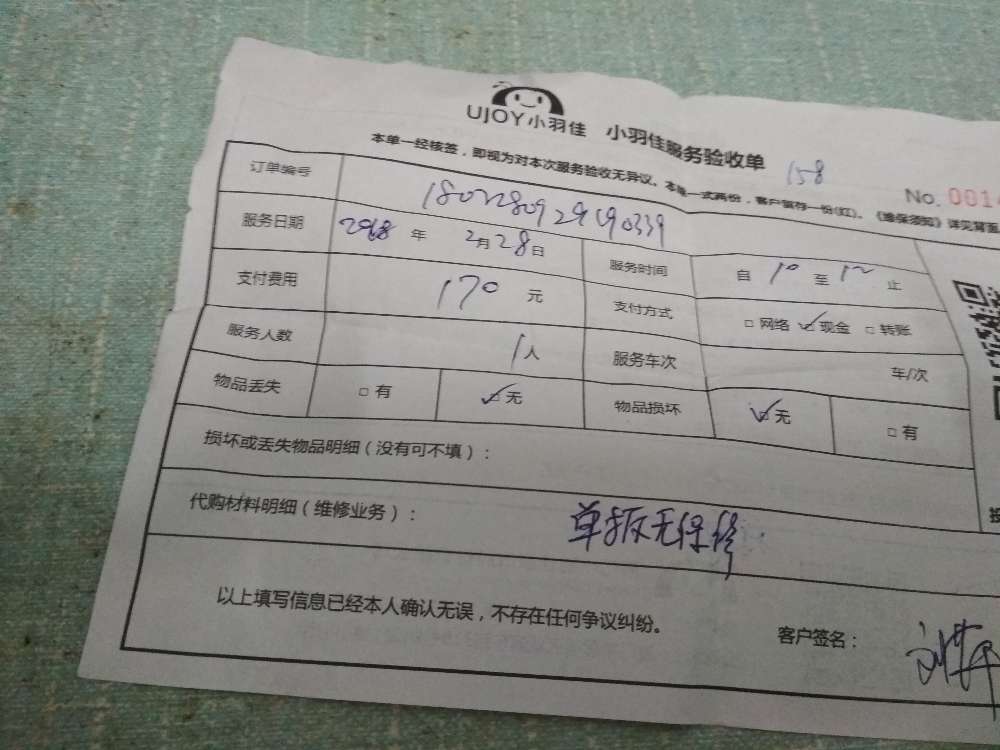 UJOY小羽佳 小羽佳服务验收单
158
本单一经核签，即视为对本次服务验收无异议。本单一式两份，客户留存一份(红)。《维保须知》详见背面
No. 001
订单编号
服务日期 2018 年 2月28日 服务时间 自 10 至 12 止
支付费用 170 元 支付方式 □ 网络 ☑ 现金 □ 转账
服务人数 1人 服务车次 车/次
物品丢失 □ 有 ☑ 无 物品损坏 ☑ 无 □ 有
损坏或丢失物品明细（没有可不填）：
代购材料明细（维修业务）： 单按无保修
以上填写信息已经本人确认无误，不存在任何争议纠纷。
客户签名：